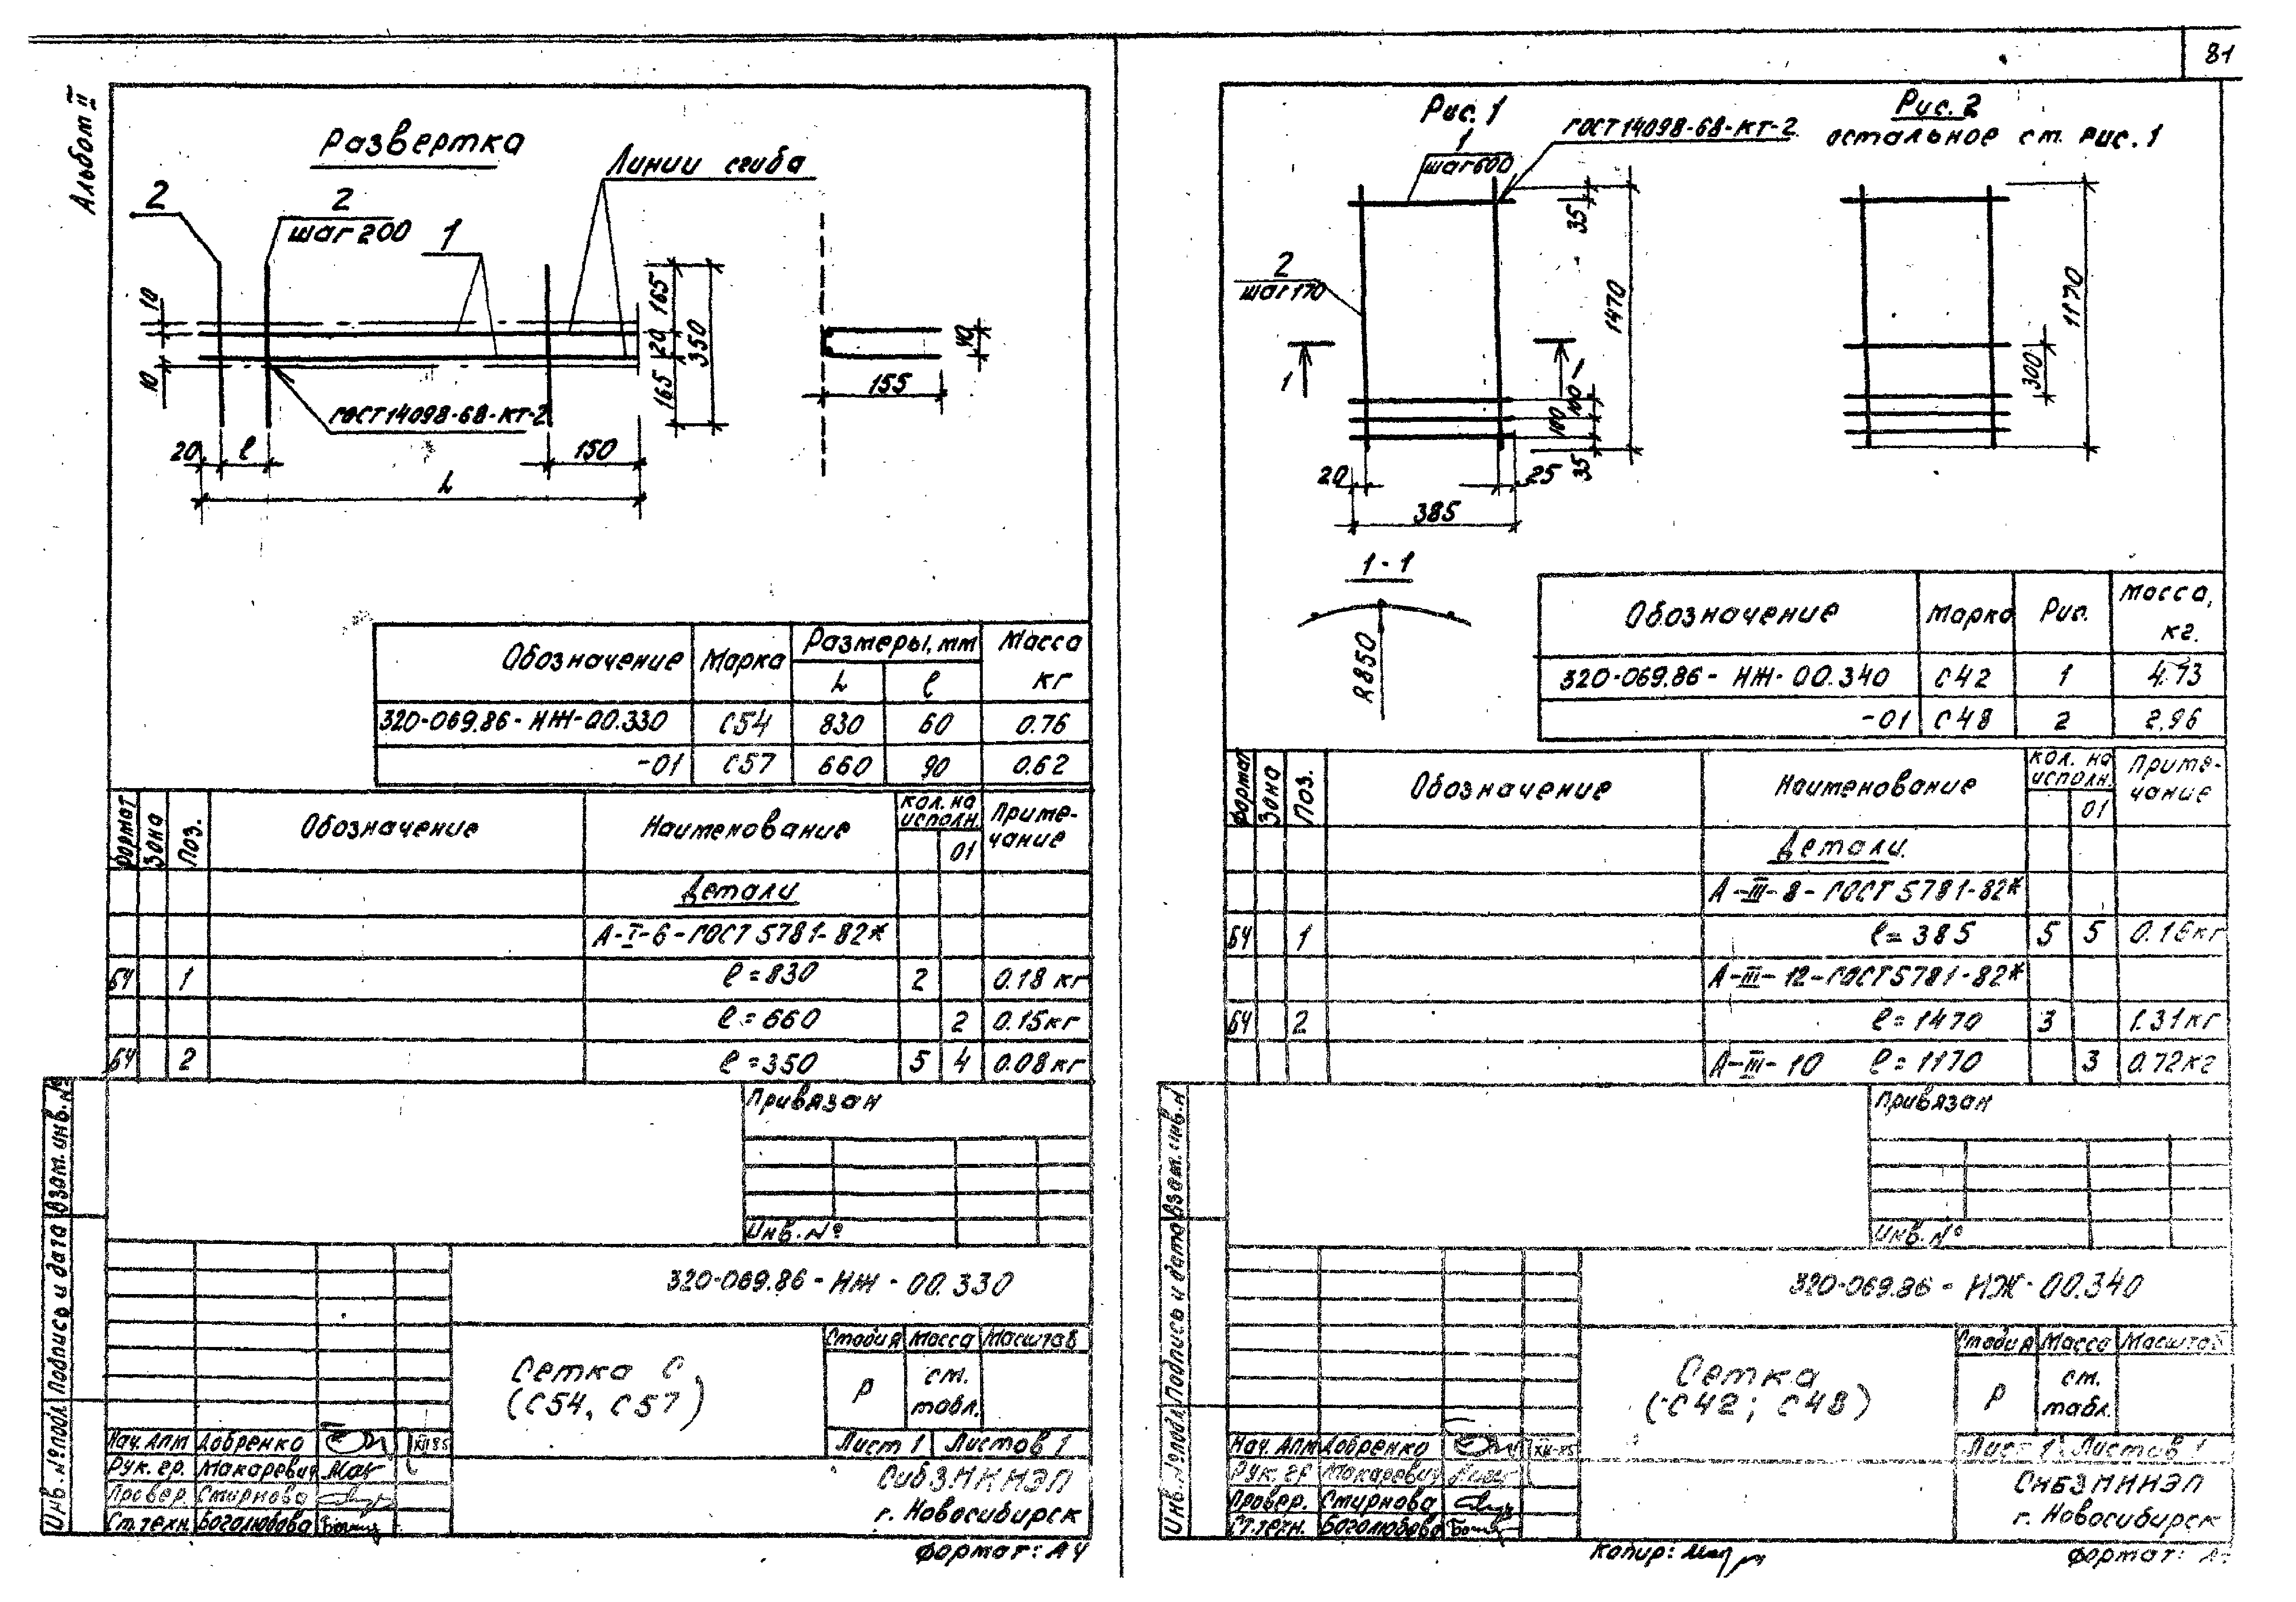 81
Альбом II
Развертка
Линии сгиба
2
2
шаг 200
1
10
10
165
20
165
350
ГОСТ 14098-68-КТ-2
20
ℓ
150
L
155
40
Обозначение
Марка
Размеры, мм
Масса
кг
L
ℓ
320-069.86-НЖ-00.330
С54
830
60
0.76
-01
С57
660
90
0.62
Формат
Зона
Поз.
Обозначение
Наименование
Кол. на
исполн.
01
Приме-
чание
Детали
А-I-6-ГОСТ 5781-82*
БЧ
1
ℓ=830
2
0.18 кг
ℓ=660
2
0.15 кг
БЧ
2
ℓ=350
5
4
0.08 кг
Привязан
Инв. №
Взам. инв. №
Подпись и дата
Инв. № подл.
320-069.86-НЖ-00.330
Сетка С
(С54, С57)
Стадия
Масса
Масштаб
Р
см.
табл.
Лист 1
Листов 1
Нач. АПМ
Добренко
XII 85
Рук. гр.
Макаревич
Провер.
Смирнова
Ст. техн.
Боголюбова
СибЗНИИЭП
г. Новосибирск
Формат: А4
Рис. 1
1
шаг 600
ГОСТ 14098-68-КТ-2
Рис. 2
остальное см. рис. 1
2
шаг 170
35
1470
1
1
100
100
35
20
25
385
1170
300
1-1
R850
Обозначение
Марка
Рис.
Масса,
кг.
320-069.86-НЖ-00.340
С42
1
4.73
-01
С48
2
2.96
Формат
Зона
Поз.
Обозначение
Наименование
Кол. на
исполн.
01
Приме-
чание
Детали
А-III-8-ГОСТ 5781-82*
БЧ
1
ℓ=385
5
5
0.16 кг
А-III-12-ГОСТ 5781-82*
БЧ
2
ℓ=1470
3
1.31 кг
А-III-10 ℓ=1170
3
0.72 кг
Привязан
Инв. №
Взам. инв. №
Подпись и дата
Инв. № подл.
320-069.86-НЖ-00.340
Сетка
(С42; С48)
Стадия
Масса
Масштаб
Р
см.
табл.
Лист 1
Листов 1
Нач. АПМ
Добренко
XII-85
Рук. гр.
Макаревич
Провер.
Смирнова
Ст. техн.
Боголюбова
СибЗНИИЭП
г. Новосибирск
Копир:
Формат: